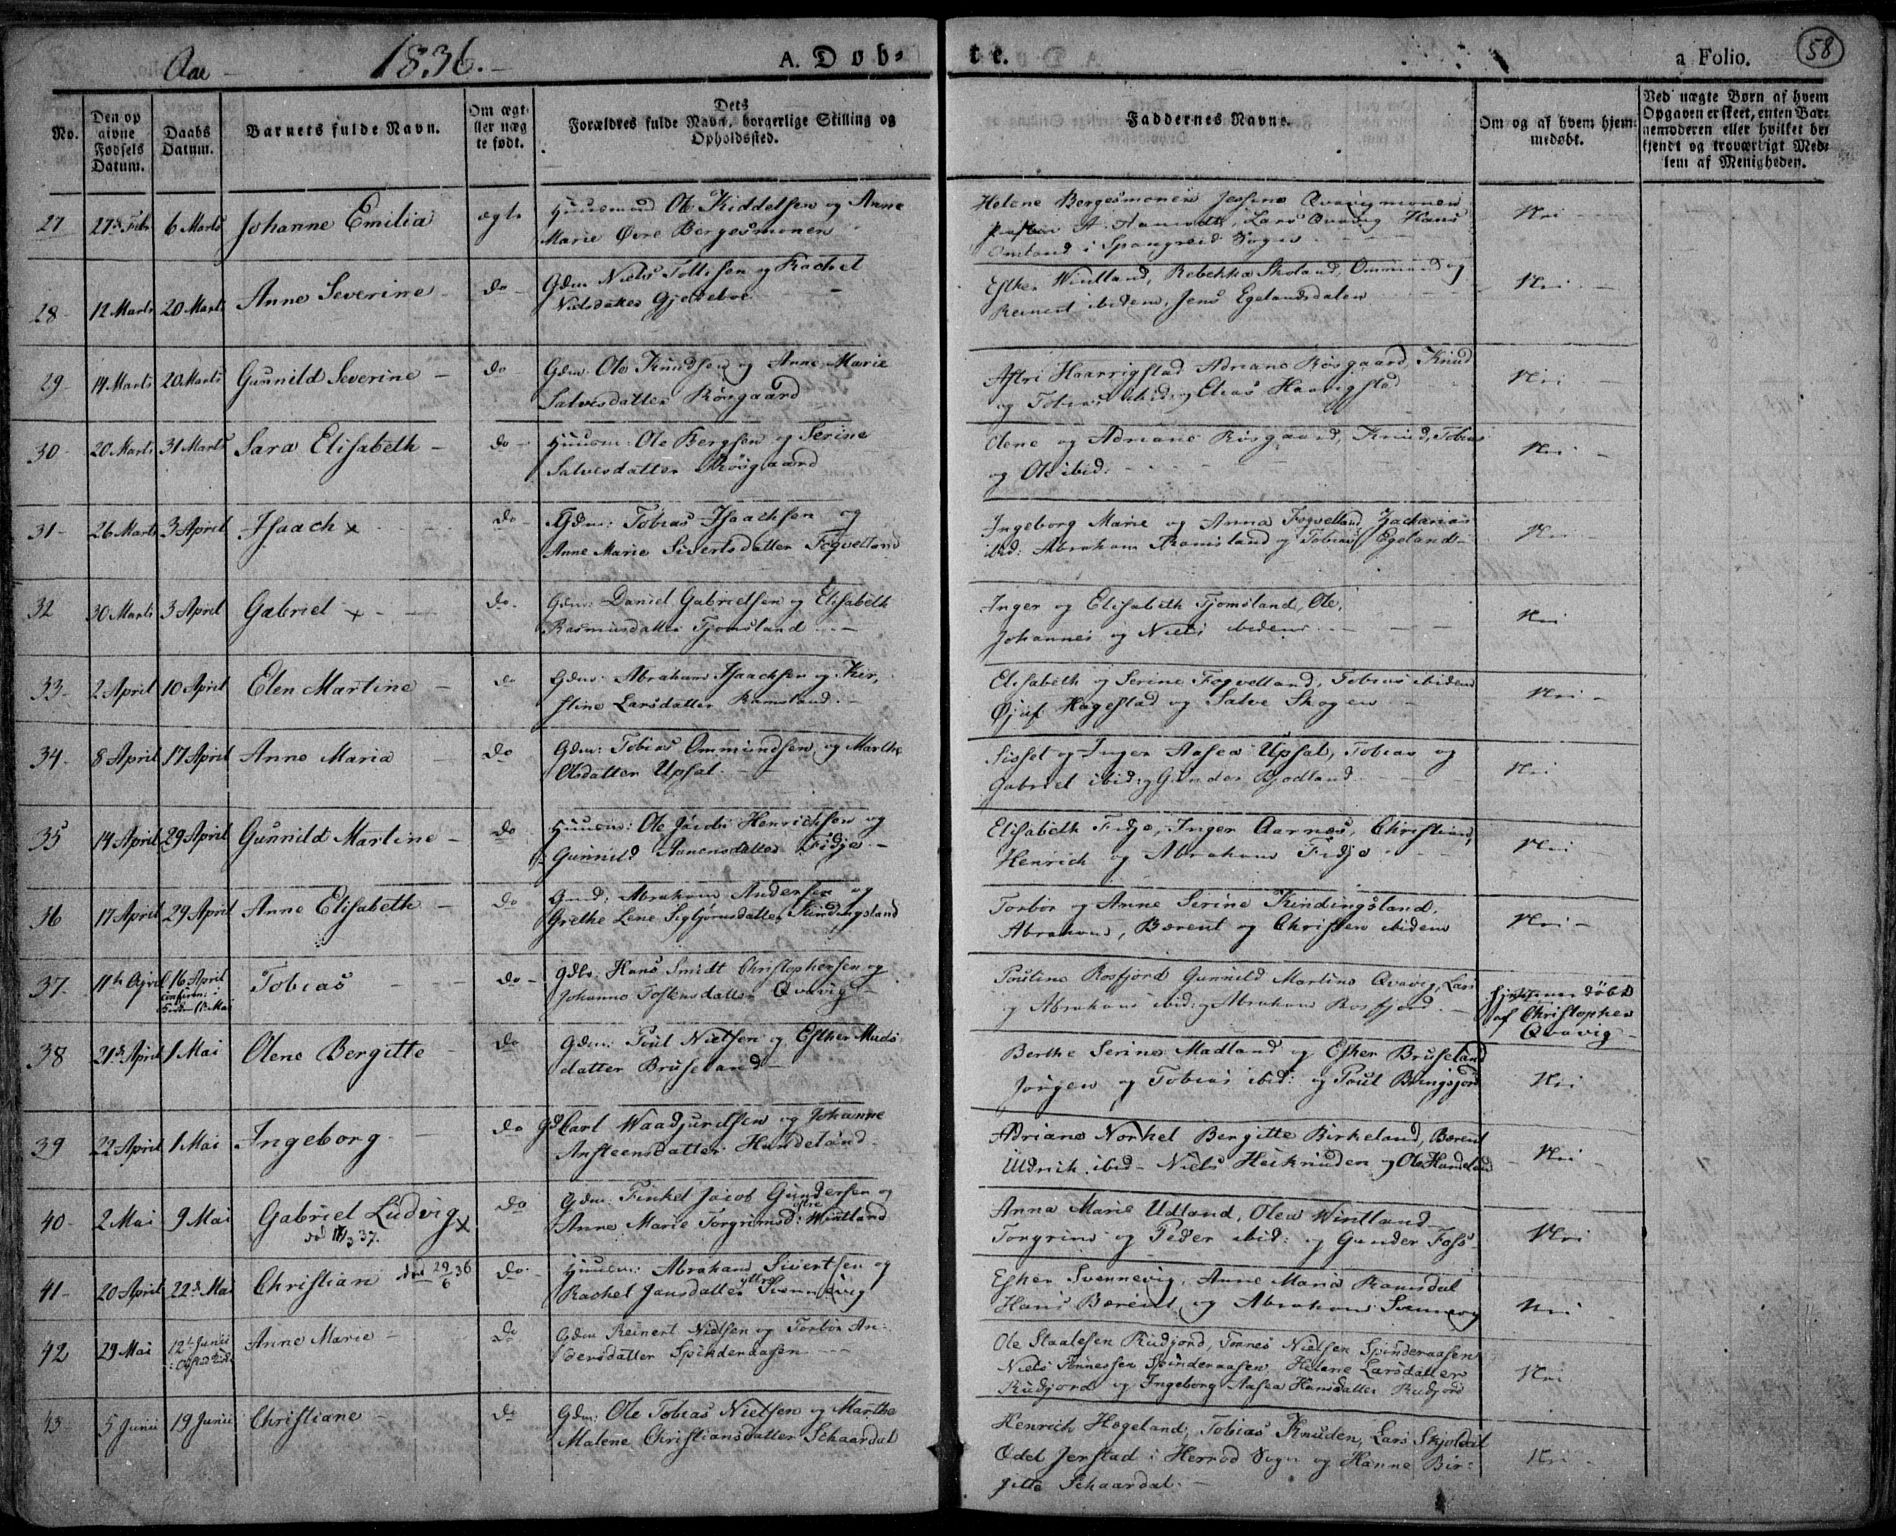 Aae 1836. A. Døb-
te. a Folio. 58
No.
Den op
givne
Fødsels
Datum.
Daabs
Datum.
Barnets fulde Navn.
Om ægt-
ller næg
te født.
Dets
Forældres fulde Navn, borgerlige Stilling og
Opholdssted.
Faddernes Navne.
Om og af hvem hjem-
medøbt.
Ved uægte Børn af hvem
Opgaven er skeet, enten Bar-
nemoderen eller hvilket be-
kjendt og troværdigt Med-
lem af Menigheden.
27 27de Febr 6 Marts Johanne Emilia ægte
Huusmand Ole Kiddelsen og Anne
Marie Øvre Bergesmonen
Helene Bergesmonen Jessine Qvavigmonen
A. Lars Qvavig Hans
Omland i Spangreid Sogn
Nei
28 12 Marts 20 Marts Anne Severine do
Gdm Niels Tollisen og Rachel
Nielsdatter
Esther Wintland, Rebekka Skoland, Ommund og
Reinert ibidem, Jens Egelandsdalen
Nei
29 14 Marts 20 Marts Gunnild Severine do
Gdm. Ole Knudsen og Anne Marie
Salvesdatter Rôsgaard
Astri Haarrigstad Adriane Rôsgaard, Knud
og Tobias ibid. og Elias Haarigstad
Nei
30 20 Marts 31 Marts Sara Elisabeth do
Huusm: Ole Bergsen og Serine
Salvesdatter Rôsgaard
Olene og Adriane Rôsgaard, Knud, Tobias
og Ole ibid:
Nei
31 26 Marts 3 April Isaach x do
Gdm: Tobias Isaachsen og
Anne Marie Sivertsdatter Fogvelland
Ingeborg Marie og Anna Fogvelland Zacharias
ibid: Abraham Ramsland og Tobias Egeland
Nei
32 30 Marts 3 April Gabriel x do
Gdm: Daniel Gabrielsen og Elisabeth
Rasmusdatter Tjomsland
Inger og Elisabeth Tjomsland, Ole,
Johannes og Niels ibidem
Nei
33 2 April 10 April Elen Martine do
Gdm: Abraham Isaachsen og Kir-
stine Larsdatter Ramsland.
Elisabeth og Serine Fogvelland, Tobias ibidem
Øjuf Hagestad og Salve Skogen
Nei
34 8 April 17 April Anne Maria do
Gdm: Tobias Ommundsen, og Marthe
Olsdatter Upsal.
Sissel og Inger Aasea Upsal, Tobias og
Gabriel ibid: og Gunder Bjodland
Nei
35 14 April 29 April Gunnild Martine do
Huusm: Ole Jacobs Henrichsen og
Gunnild Aanensdatter Fidje
Elisabeth Fidje, Inger Aarnes, Christian,
Henrich og Abraham Fidje
Nei
36 17 April 24 April Anne Elisabeth do
Gmd: Abraham Andersen og
Grethe Lene Sigbjörnsdatter Kindingsland
Torbor og Anne Serine Kindingsland,
Abraham, Bærent og Christen ibidem
Nei
37 11te April 16 April Tobias do
Hans Smidt Christophersen og
Johanne Tostensdatter Qvavig
Pouline Rosfjord Gunnild Martine Qvavig, Lars
og Abraham ibid: og Abraham Rosfjord
Hjemmedôbt
af Christopher
Qvavig
38 21de April 1 Mai Olene Bergitte do
Gdm: Poul Nielsen og Esther Mads
datter Bruseland
Berthe Serine Madland og Esther Bruseland
Jörgen og Tobias ibid: og Poul Bringsjord
Nei
39 22 April 1 Mai Ingeborg do
Carl Waadjuretsen og Johanne
Ansteensdatter Handeland
Adriane Norkel Bergitte Birkeland, Bærent
Uldrich ibid Niels Heiknuden og Ole Handeland
Nei
40 2 Mai 9 Mai Gabriel Ludvig x do
Gdm: Finkel Jacob Gundersen og
Anne Marie Torgrimsd: Wintland
Anna Marie Udland, Olea Wintland
Torgrim og Peder ibid: og Gunder Foss
Nei
41 20 April 22de Mai Christian död 29/6 36 do
Huusm: Abraham Sivertsen og
Rachel Jansdatter yttre Svennevig
Esther Svennevig, Anne Maria Ramsdal
Hans Bærent og Abraham Svennevig
Nei
42 29 Mai 12te Junii Anne Marie do
Gdm Reinert Nielsen og Torbor An-
dersdatter Spinderaasen
Ole Staalesen Rudjord, Tönnes Nielsen Spinderaasen
Niels Tönnessen Spinderaasen, Helene Larsdatter
Rudjord og Ingeborg Aasea Hansdatter Rudjord
Nei
43 5 Junii 19 Junii Christiane do
Gdm: Ole Tobias Nielsen og Marthe
Malene Christiansdatter Schaardal
Henrich Hogeland, Tobias Knuden, Lars Skjoldal
Odel Jerstad i Herrød Sogn og Hanne Bir-
gitte Schaardal.
Nei